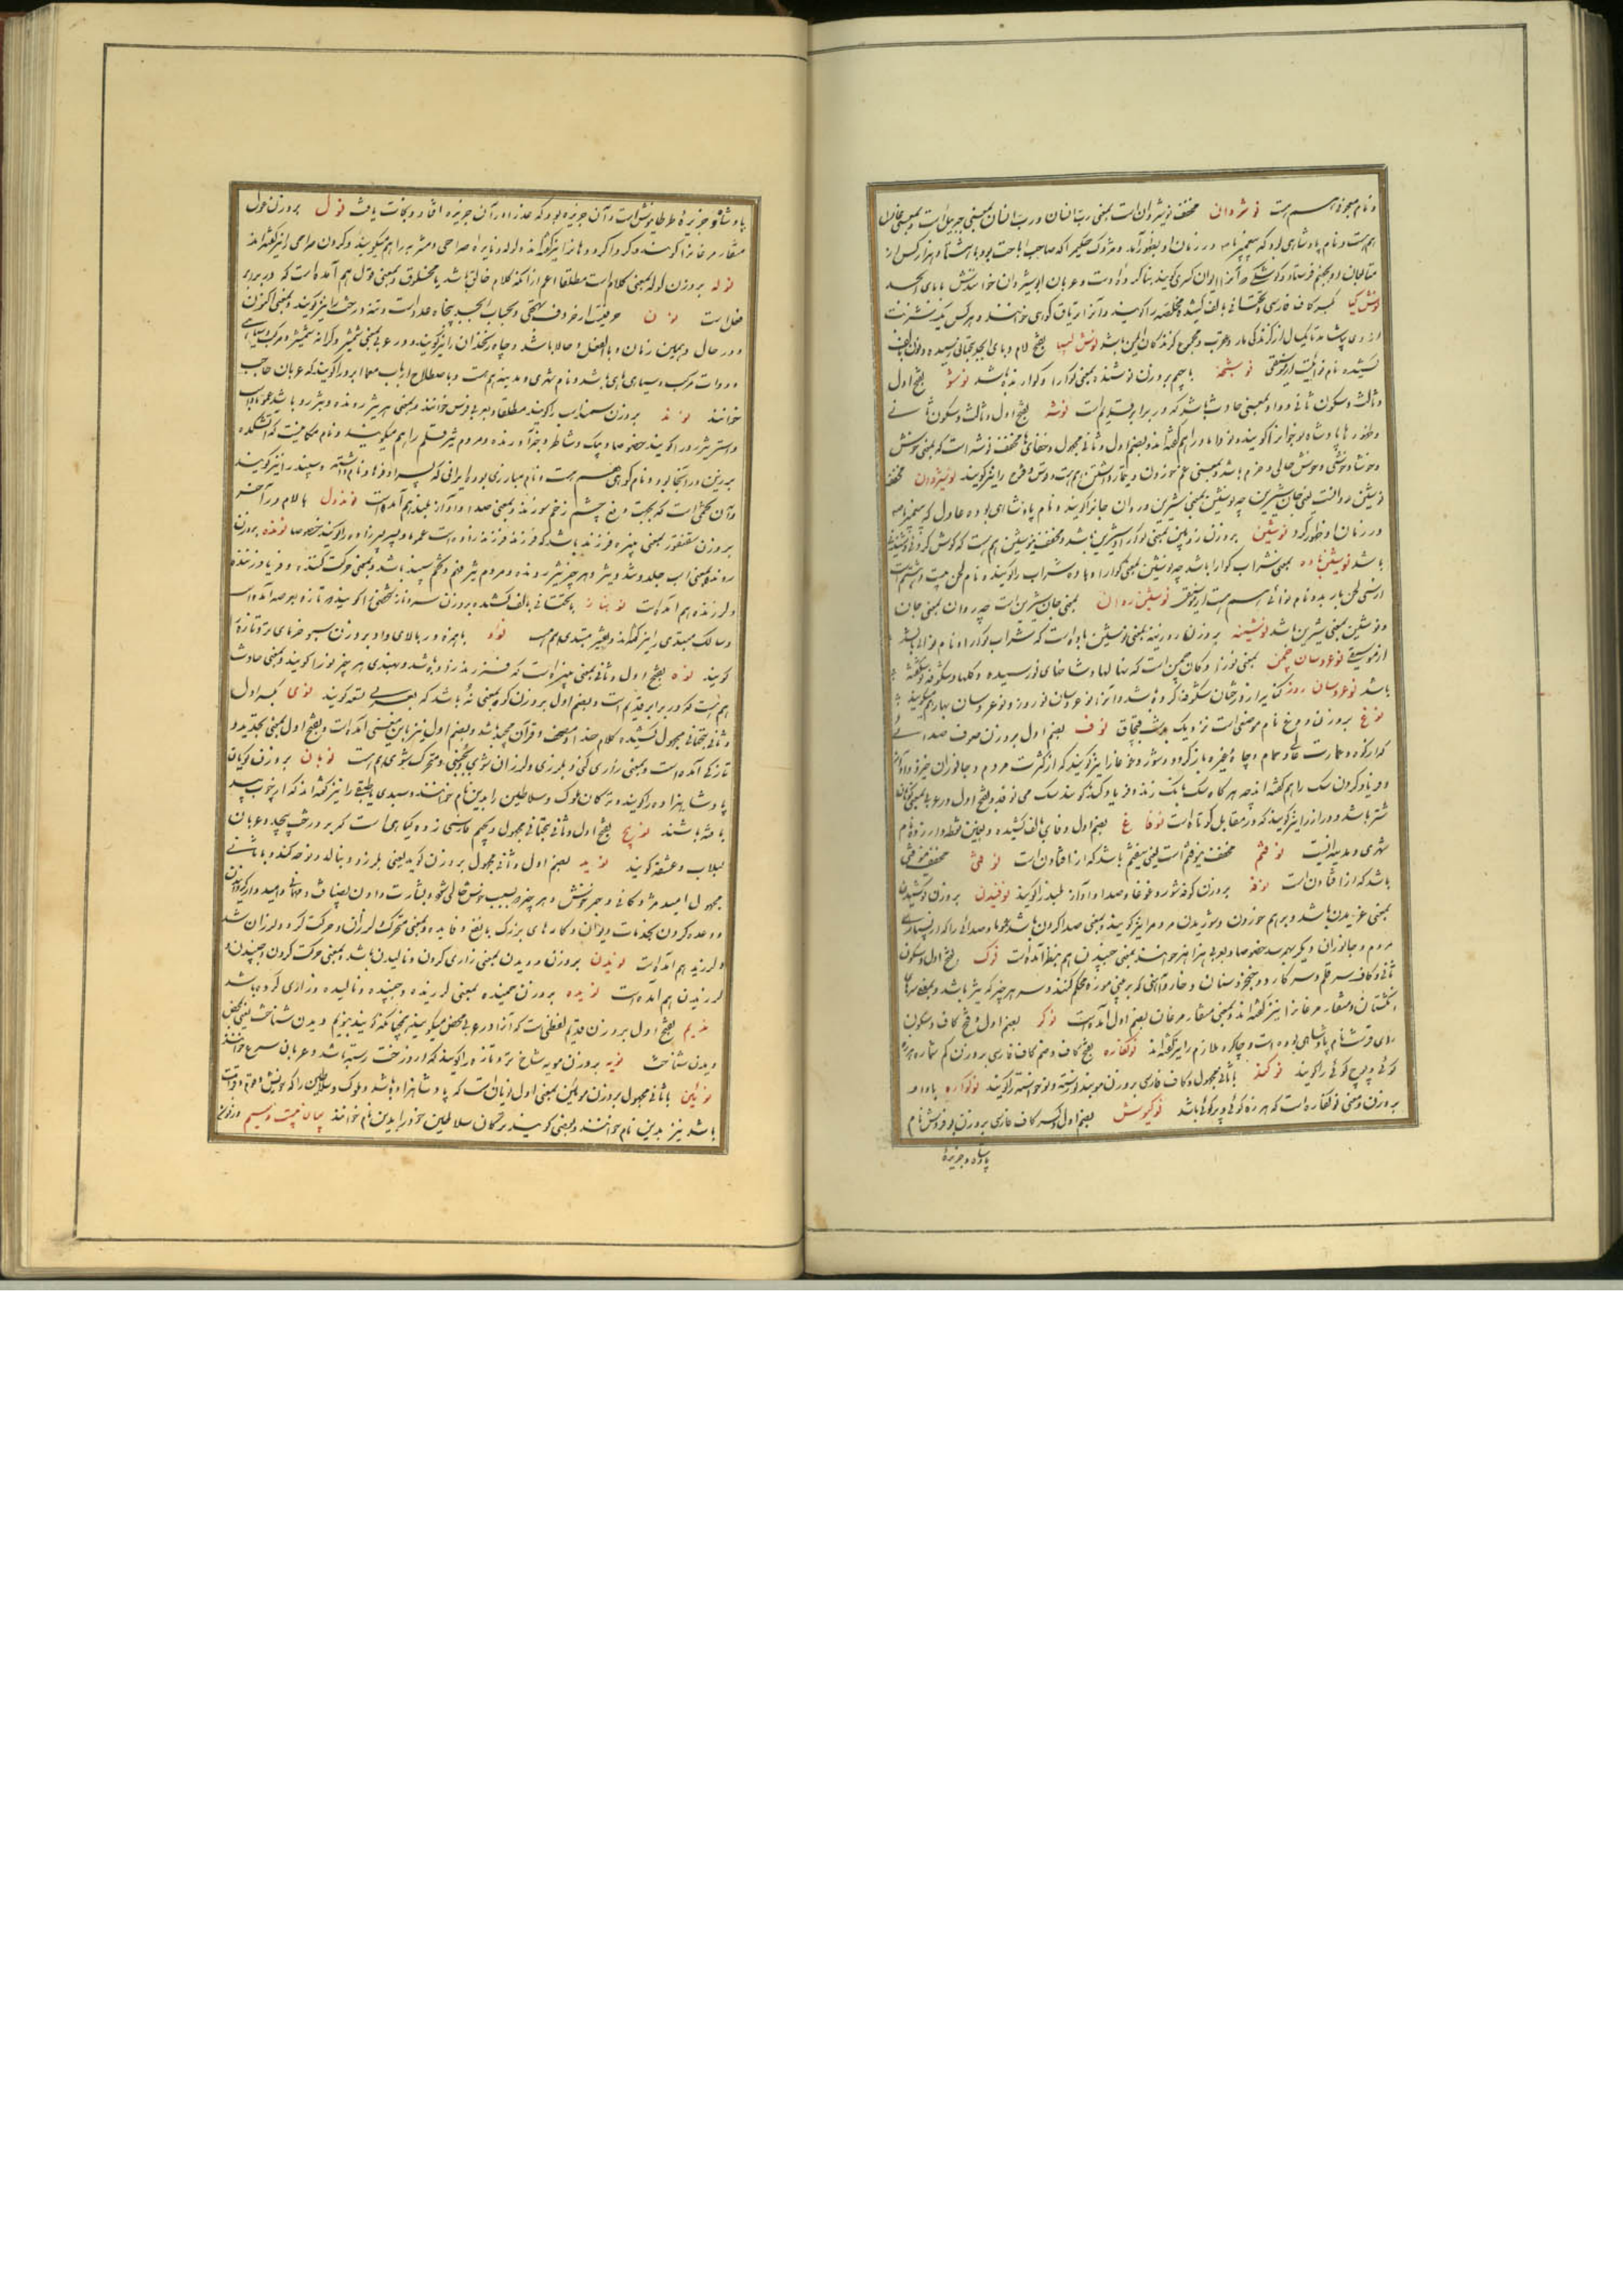 و نام معجونی هم هست نوشروان مخفف نوشیروان است بمعنی رب النسان و رب النسان بمعنی جبرئیل است و بمعنی
هم هست و نام پادشاهی بود که پیغمبر ما در زمان او بظهور آمد و مزدک حکیم را که صاحب اباحت بود با هشتاد هزار کس از
متابعان او بجهنم فرستاد و کوشکی که آنرا ایوان کسری گویند بنا کرده اوست و عربان انوشیروان خوانندش
نوش گیا بکسر کاف فارسی و تحتانی بالف کشیده مخلصه را گویند و آنرا تریاق کوهی خوانند و هر کس یک
از وی بیاشامد تا یکسال از گزندگی مار و عقرب و جمیع گزندگان ایمن باشد نوش لبینا بفتح لام و بای ابجد بتحتانی رسیده و نون بالف
کشیده نام نوائیست از موسیقی نوشنجه با جیم بر وزن نوشنده بمعنی گوارا و گوارنده باشد نوشو بفتح اول
و ثالث و سکون ثانی و واو بمعنی حادث باشد که در برابر قدیم است نوشه بفتح اول و ثالث و سکون ثانی
و ظهور ها پادشاه نوجوانرا گویند و نوداماد را هم گفته اند و بضم اول و ثانی مجهول و خفای ها مخفف نوشه است که بمعنی خوش
و خوشا و خوشی و خوش حالی و خرم باشد و بمعنی غم خوردن و تیمار داشتن هم هست و قوس قزح را نیز گویند نوشیروان مخفف
نوشین روانست یعنی جان شیرین چه نوشین بمعنی شیرین و روان جانرا گویند و نام پادشاهی بوده عادل که پیغمبر ما
در زمان او ظهور کرد نوشین بر وزن زوبین بمعنی گوارا و شیرین باشد و مخفف نیوشین هم هست که گوش کردن و شنیدن
باشد نوشین باده بمعنی شراب گوارا باشد چه نوشین بمعنی گوارا و باده شراب را گویند و نام لحن بیست و هشتم است
از سی لحن باربد و نام نوائی هم هست از موسیقی نوشین روان بمعنی جان شیرین است چه روان بمعنی جان
و نوشین بمعنی شیرین باشد نوشینه بر وزن لوزینه بمعنی نوشین باده است که شراب گوارا و نام نوائی باشد
از موسیقی نوعروسان چمن بمعنی نوزادگان چمن است که نهالها و شاخهای نورسیده و گلها و شکوفه نوشکفته
باشد نوعروسان روز کنایه از درختان شکوفه کرده باشد و آنرا نوعروسان نوروز و نوعروسان بهار هم گویند
نوغ بر وزن دوغ نام موضعی است نزدیک بدشت قبچاق نوف بضم اول بر وزن صوف صدائی
که از کوه و عمارت عالی و حمام و چاه و غیره باز گردد و شور و غوغا را نیز گویند که از کثرت مردم و جانوران خیزد و آواز
و فریاد کردن سگ را هم گفته اند چه هرگاه سگ بانگ زند و فریاد کند گویند سگ می نوفد و بفتح اول در عربی بمعنی کوهان
شتر باشد و دراز را نیز گویند که در مقابل کوتاه است نوفاغ بضم اول و فای بالف کشیده و بغین نقطه دار زده نام
شهری و مدینه ایست نوفتم مخفف نیوفتم است یعنی نیفتم باشد که از افتادن است نوفتی مخفف نیوفتی
باشد که از افتادن است نوفه بر وزن کوفه شور و غوغا و صدا و آواز بلند را گویند نوفیدن بر وزن کوشیدن
بمعنی غریدن باشد و بر هم خوردن و شوریدن مردم را نیز گویند و بمعنی صدا کردن باشد عموما و صدائی را که از بسیاری
مردم و جانوران دیگر بهم رسد خصوصا و بعربی هزاهز خوانند و بمعنی جنبیدن هم بنظر آمده است نوک بضم اول و سکون
ثانی و کاف سر قلم و سر کارد و خنجر و سنان و خار و آهنی که بر بینی موزه محکم کنند و سر هر چیز که تیز باشد و بمعنی سرهای
انگشتان و منقار مرغانرا نیز گفته اند و بمعنی منقار مرغان بضم اول آمده است نوکر بضم اول و فتح کاف و سکون
رای قرشت نام پادشاهی بوده است و چاکر و ملازم را نیز گفته اند نوکفاره بفتح کاف و ضم کاف فارسی بر وزن کم شماره هرزه
گوئی و پوچ گوئی را گویند نوکند با ثانی مجهول و کاف فارسی بر وزن موبند نورسته و نوخاسته را گویند نوکواره با واو
بر وزن و معنی نوکفاره است که هرزه گوئی و پر گوئی باشد نوکیوش بضم اول و کسر کاف فارسی بر وزن نام
پادشاه جزیره
پادشاه جزیره طرطانیوش است و آن جزیره بود که عذرا در آن جزیره افتاد و نجات یافت نول بر وزن غول
منقار مرغانرا گویند و گرداگرد دهانرا نیز گفته اند و لوله و نایره صراحی و مشربه را هم میگویند و گردن صراحی را نیز گفته اند
نوله بر وزن لوله بمعنی کلام است مطلقا اعم از آنکه کلام خالق باشد یا مخلوق و بمعنی قول هم آمده است که در برابر
فعل است نون حرفیست از حروف تهجی و بحساب ابجد پنجاه عدد است و تنه درخت را نیز گویند و بمعنی اکنون
و در حال و همین زمان و بالفعل و حالا باشد و چاه زنخدان را نیز گویند و در عربی بمعنی شمشیر و کرانه شمشیر و مرکب و سیاهی
و دوات مرکب و سیاهی ماهی باشد و نام شهری و مدینه هم هست و باصطلاح ارباب معما ابرو را گویند که عربان حاجب
خوانند نوند بر وزن سمند اسب را گویند مطلقا و بعربی فرس خوانند و بمعنی هر تیز رونده و تیز رو باشد عموما و اسب
و استر تیز رو را گویند خصوصا و پیک و شاطر و خبر آورنده و مردم تیز فهم را هم میگویند و نام مکانیست که آتشکده
برزین در آنجا بود و نام کوهی هم هست و نام مبارزی بود ایرانی که پسر او فرهاد نام داشته و سپند را نیز گویند
و آن تخمی است که بجهت دفع چشم زخم سوزند و بمعنی صدا و آواز بلند هم آمده است نوندول با لام در آخر
بر وزن سقنقور بمعنی نبیره فرزند باشد که فرزند فرزند زاده است عموما و پسر پسرزاده را گویند خصوصا نونده بر وزن
رونده بمعنی اسب جلد و تند و تیز و هر چیز تیز رونده و مردم تیز فهم و تخم سپند باشد و بمعنی حرکت کننده و فریاد زننده
و لرزنده هم آمده است نونیاز با تحتانی بالف کشیده بر وزن سرفراز شخصی را گویند که تازه بعرصه آمده است
و سالک مبتدی را نیز گفته اند و بمعنی مبتدی هم هست نواو با همزه در بالای واو بر وزن سبو خرمای تر و تازه را
گویند نوه بفتح اول و ثانی بمعنی نبیره است که فرزند فرزند باشد و بهندی هر چیز نو را گویند و بمعنی حادث
هم هست که در برابر قدیم است و بضم اول بر وزن کوه بمعنی نه باشد که بعربی تسعه گویند نوی بکسر اول
و ثانی بتحتانی مجهول کشیده کلام خدا و مصحف و قرآن مجید باشد و بضم اول نیز باین معنی آمده است و بفتح اول بمعنی تجدید و
تازگی آمده است و بمعنی زاری کنی و بلرزی و لرزان شوی و بجنبی و متحرک شوی هم هست نویان بر وزن گویان
پادشاهزاده را گویند و ترکان ملوک و سلاطین را بدین نام خوانند و سبدی یا طبقی را نیز گفته اند که از چوب بید
بافته باشند نویج بفتح اول و ثانی بتحتانی مجهول و بجیم فارسی زده گیاهی است که بر درخت پیچد و عربان
لبلاب و عشقه گویند نوید بضم اول و ثانی مجهول بر وزن گوید یعنی بلرزد و بنالد و نوحه کند و با ثانی
مجهول امید و مژدگانی و خبر خوش و هر چیز که بسبب خوش حالی شود و بشارت دادن بضیافت و مهمانی و امیدوار کردن
و وعده کردن بخدمات دیوان و کارهای بزرگ با نفع و فایده و بمعنی متحرک و لرزان و حرکت کرد و لرزان شد
و لرزید هم آمده است نویدن بر وزن دویدن بمعنی زاری کردن و نالیدن باشد و بمعنی حرکت کردن و جنبیدن و
لرزیدن هم آمده است نویده بر وزن خمیده بمعنی لرزیده و جنبیده و نالیده و زاری کرده باشد
نویم بفتح اول بر وزن قدیم لفظی است که آنرا در عربی محض میگویند همچنانکه گویند نویم دیدن شناخت یعنی بمحض
دیدن شناخت نویه بر وزن مویه شاخ تر و تازه را گویند که از درخت رسته باشد و عربان سرع خوانند
نوئین با ثانی مجهول بر وزن موئین بمعنی اول نویان است که پادشاهزاده باشد و ملوک و سلاطین را که
باشد نیز بدین نام خوانند و بعضی گویند ترکان سلاطین خود را بدین نام خوانند بیان بیست و سیم در نون